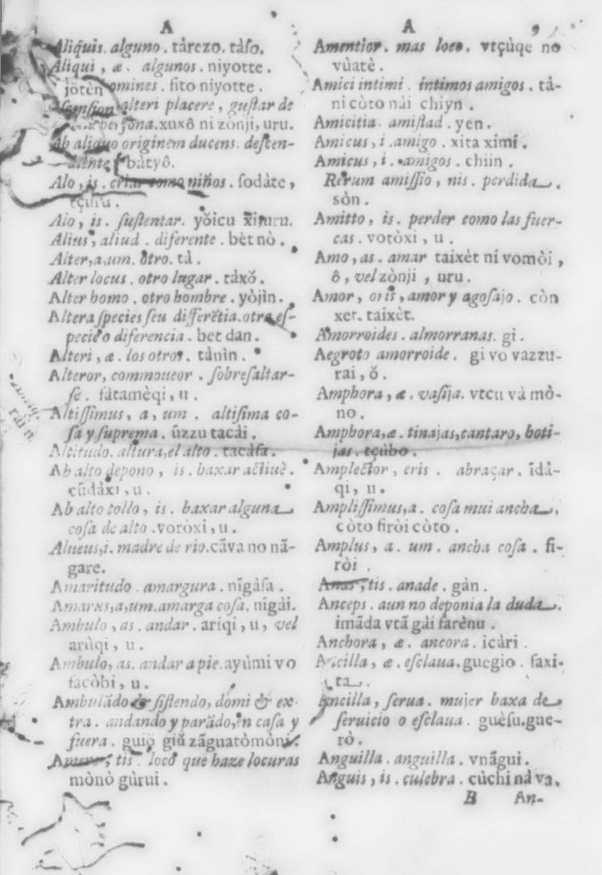 A
Aliquis. alguno. tàrezo. tàſo.
Aliqui, æ. algunos. niyotte.
jòtèn omines. ſito niyotte.
alteri placere, guſtar de
perſona. xuxô ni zònji, uru.
Ab aliquo originem ducens. deſcen-
diente. bàtyô.
Alo, is. criar como niños. ſodàte,
tçuru.
Alo, is. ſuſtentar. yǒicu xiruru.
Alius, aliud. diferente. bèt nò.
Alter, a, um. otro. tà.
Alter locus. otro lugar. tàxǒ.
Alter homo. otro hombre. yòjìn.
Altera ſpecies ſeu differẽtia. otra eſ-
pecie o diferencia. bet dan.
Alteri, æ. los otros. tànìn.
Alteror, commoueor. sobreſaltar-
ſe. fàtamèqi, u.
Altiſſimus, a, um. altiſima co-
ſa y ſuprema. ũzzu tacài.
Altitudo. altura, el alto. tacàſa.
Ab alto depono, is. baxar
cũdàxi, u.
Ab alto tollo, is. baxar alguna
coſa de alto. voròxi, u.
Alueus, i. madre de rio. cãva no nã-
gare.
Amaritudo. amargura. nĩgàſa.
Amarus, a, um. amarga coſa. nĩgài.
Ambulo, as. andar. ariqi, u, vel
arùqi, u.
Ambulo, as. andar a pie. ayùmi vo
facòbi, u.
Ambulãdo & ſiſtendo, domi & ex-
tra. andando y parãdo, en caſa y
fuera. guiò giũ zãguatòmònì.
tis. loco que haze locuras
mònò gùrui.
A 9
Amentior. mas loco. vtçùqe no
vùatè.
Amici intimi. intimos amigos. tà-
ni còto nài chiyn.
Amicitia. amiſtad. yen.
Amicus, i. amigo. xita ximi.
Amicus, i. amigos. chiin.
Rerum amiſſio, nis. perdida.
sòn.
Amitto, is. perder como las fuer-
cas. votòxi, u.
Amo, as. amar taixèt ni vomòi,
ô, vel zònji, uru.
Amor, oris, amor y agoſajo. còn
xet. taixèt.
Amorroides. almorranas. gi.
Aegroto amorroide. gi vo vazzu-
rai, ǒ.
Amphora, æ. vaſija. vtçu và mò-
no.
Amphora, æ. tinajas, cantaro, boti-
jas. tçùbo.
Amplector, eris. abraçar. ĩdà-
qi, u.
Ampliſſimus, a. coſa mui ancha.
còto firòi còto.
Amplus, a. um. ancha coſa. fi-
ròi.
Anas, tis. anade. gàn.
Anceps. aun no deponia la duda.
imãda vtã gài farènu.
Anchora, æ. ancora. icàri.
Ancilla, æ. eſclaua. guegio. ſaxi-
ta.
Ancilla, serua. mujer baxa de
ſeruicio o eſclaua. guèſu. gue-
rò.
Anguilla. anguilla. vnãgui.
Anguis, is. culebra. cùchi nà va.
B An-